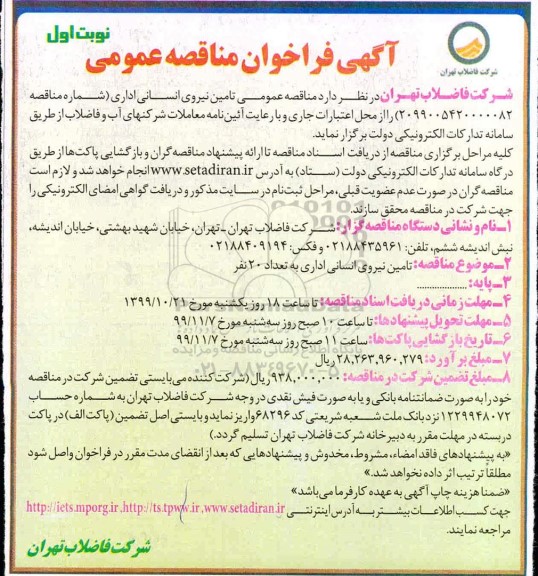 نوبت اول
شرکت فاضلاب تهران
آگهی فراخوان مناقصه عمومی
شرکت فاضلاب تهران در نظر دارد مناقصه عمومی تامین نیروی انسانی اداری (شماره مناقصه
۲۰۹۹۰۰۵۴۲۰۰۰۰۰۸۲) را از محل اعتبارات جاری و با رعایت آئین‌نامه معاملات شرکتهای آب و فاضلاب از طریق
سامانه تدارکات الکترونیکی دولت برگزار نماید.
کلیه مراحل برگزاری مناقصه از دریافت اسناد مناقصه تا ارائه پیشنهاد مناقصه‌گران و بازگشایی پاکت‌ها از طریق
درگاه سامانه تدارکات الکترونیکی دولت (ستاد) به آدرس www.setadiran.ir انجام خواهد شد و لازم است
مناقصه‌گران در صورت عدم عضویت قبلی، مراحل ثبت‌نام در سایت مذکور و دریافت گواهی امضای الکترونیکی را
جهت شرکت در مناقصه محقق سازند.
۱ـ نام و نشانی دستگاه مناقصه‌گزار: شرکت فاضلاب تهران ـ تهران، خیابان شهید بهشتی، خیابان اندیشه،
نبش اندیشه ششم، تلفن: ۰۲۱۸۸۴۳۵۹۶۱ و فکس: ۰۲۱۸۸۴۰۹۱۹۴
۲ـ موضوع مناقصه: تامین نیروی انسانی اداری به تعداد ۲۰ نفر
۳ـ پایه: ....................
۴ـ مهلت زمانی دریافت اسناد مناقصه: تا ساعت ۱۸ روز یکشنبه مورخ ۱۳۹۹/۱۰/۲۱
۵ـ مهلت تحویل پیشنهادها: تا ساعت ۱۰ صبح روز سه‌شنبه مورخ ۹۹/۱۱/۷
۶ـ تاریخ بازگشایی پاکت‌ها: ساعت ۱۱ صبح روز سه‌شنبه مورخ ۹۹/۱۱/۷
۷ـ مبلغ برآورد: ۲۸,۲۶۳,۹۶۰,۲۷۹ ریال
۸ـ مبلغ تضمین شرکت در مناقصه: ۹۳۸,۰۰۰,۰۰۰ ریال (شرکت کننده می‌بایستی تضمین شرکت در مناقصه
خود را به صورت ضمانتنامه بانکی و یا به صورت فیش نقدی در وجه شرکت فاضلاب تهران به شماره حساب
۱۲۲۹۹۴۸۰۷۲ نزد بانک ملت شعبه شریعتی کد ۶۸۲۹۶ واریز نماید و بایستی اصل تضمین (پاکت الف) در پاکت
دربسته در مهلت مقرر به دبیرخانه شرکت فاضلاب تهران تسلیم گردد.)
«به پیشنهادهای فاقد امضاء، مشروط، مخدوش و پیشنهادهایی که بعد از انقضای مدت مقرر در فراخوان واصل شود
مطلقا ترتیب اثر داده نخواهد شد.»
«ضمنا هزینه چاپ آگهی به عهده کارفرما می‌باشد»
جهت کسب اطلاعات بیشتر به آدرس اینترنتی http://iets.mporg.ir ,http://ts.tpww.ir ,www.setadiran.ir
مراجعه نمایند.
شرکت فاضلاب تهران